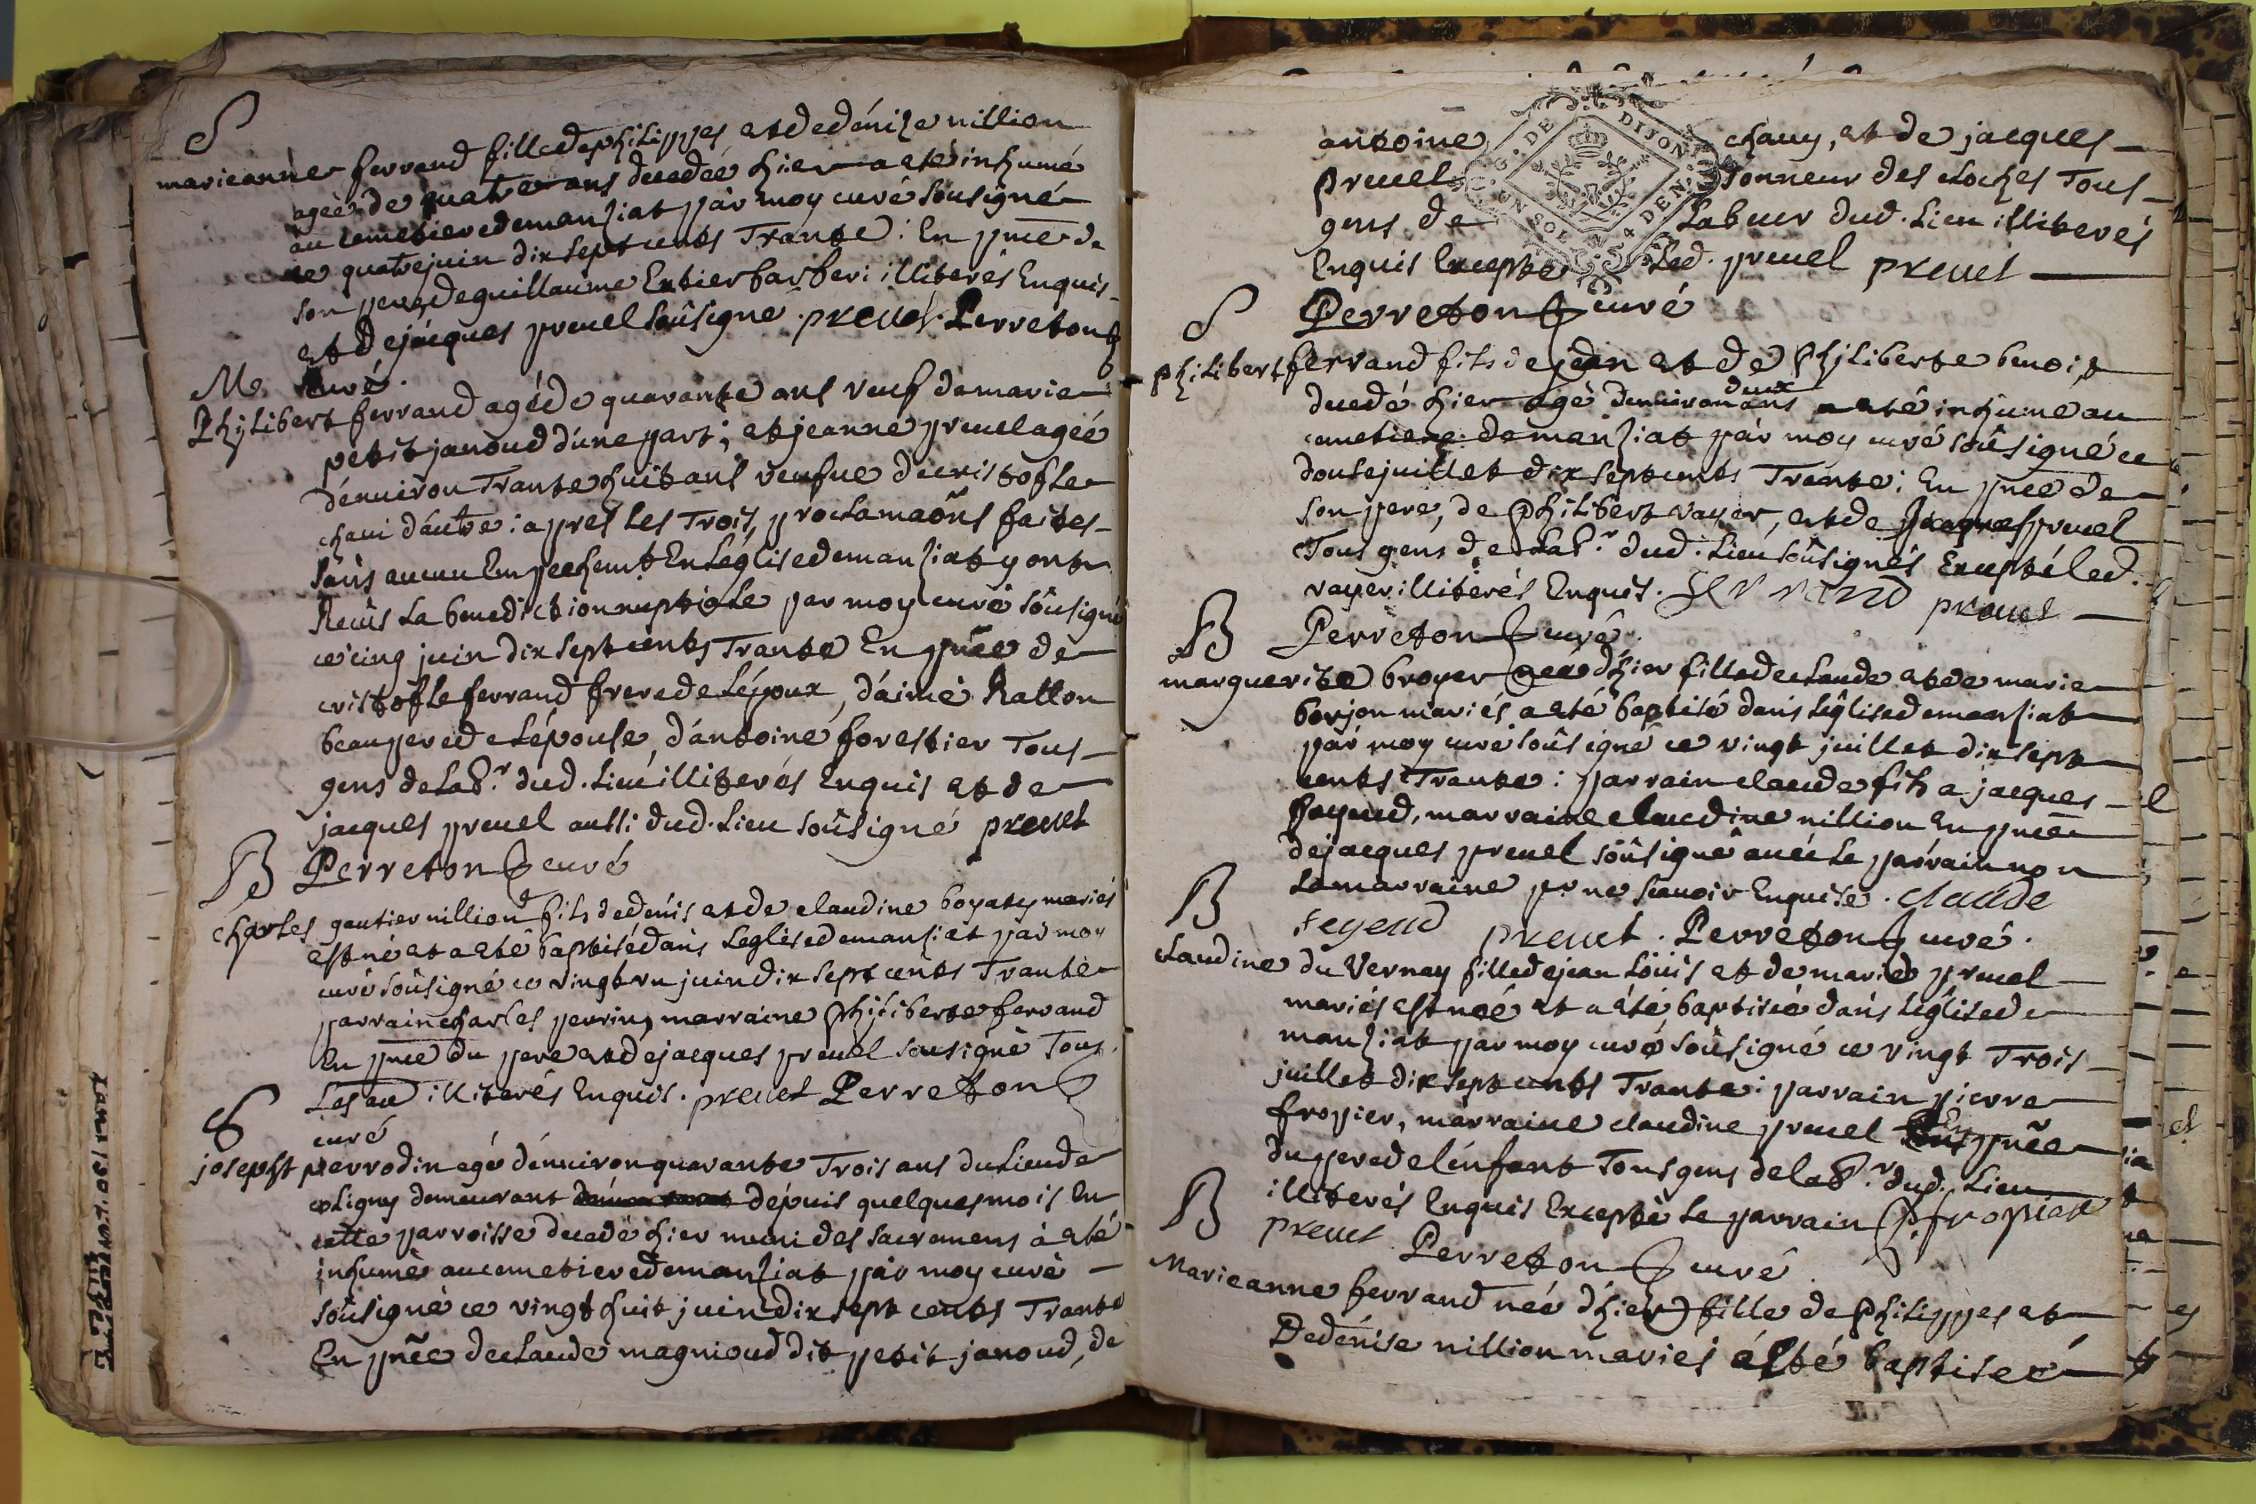 S
marieanne ferrand fille de philippes et de dénize nillion
agée de quatre ans decedée hier a eté inhumé
au cemetiere de manziat par moy curé sousigné
ce quatre juin dix sept cents Trante : En pnce de
son pere, de guillaume Entier barberi illiterés Enquis
et de jacques preuel soûsigné . preuel . Perreton
curé .
M
Philibert ferrand agé de quarante ans veuf de marie
petit janoud d'une part ; et jeanne preuel agée
dénuiron Trante huit ans veufue de cristofle
chaui d'autre : apres les Trois proclamaôns faites
sans aucun Empechemt En Léglise de manziat y ont
Recûs La benediction nuptiale par moy curé soûsigné
ce cinq juin dix sept cents Trante En pnce de
cristofle ferrand frere de Lépoux, d'aimé Ratton
beaupere de Lépouse, d'antoine forestier Tous
gens de Labr dud . Lieu illiterés Enquis et de
jacques preuel aussi dud . Lieu soûsigné preuel
Perreton curé
B
charles gautier nilliond fils de denis et de claudine boyaty mariés
est né et a eté baptisé dans Leglise de manziat par moy
curé soûsigné ce vingt un juin dix sept cents Trante
parrain charles perrin, marraine philiberte ferrand
En pnce du pere et de jacques preuel sousigné Tous
Les illiterés Enquis . preuel Perreton
curé
S
josepht perrodin agé dénuiron quarante Trois ans du Lieu de
coligny demeurant dépuis quelques mois En
cette parroisse decedé hier muni des sacremens à eté
inhumé au cemetiere de manziat par moy curé
soûsigné ce vingt huit juin dix sept cents Trante
En pnce de claude magnioud dit petit janoud, de
antoine chauy, et de jacques
preuel sonneur des cloches Tous
gens de Labeur dud . Lieu illiterés
Enquis Excepté Led . preuel preuel
G. DE DIJON
UN SOL 4 DEN.
Perreton curé
S
philibert ferrand fils de jean et de philiberte benoist
decedé hier agé dénuiron deux ans a eté inhumé au
cemetiere de manziat par moy curé soûsigné ce
douse juillet dix sept cents Trante : En pnce de
son pere, de philibert vayer, et de jacques preuel
Tous gens de Labr dud . Lieu soûsignés Excepté Led .
vayer illiterés Enquis . ferrand preuel
Perreton curé .
B
marguerite broyer née d'hier fille de claude et de marie
borjon mariés a eté baptisé dans Léglise de manziat
par moy curé soûsigné ce vingt juillet dix sept
cents Trante : parrain claude fils a jacques
feyeud, marraine claudine nillion En pnce
de jacques preuel soûsigné auec Le parrain non
La marraine pr ne scauoir Enquise . claude
feyeud preuel . Perreton curé .
B
claudine du Vernay fille de jean Loüis et de marie preuel
mariés est née et a été baptisée dans Léglise de
manziat par moy curé soûsigné ce vingt Trois
juillet dix sept cents Trante : parrain pierre
fropier, marraine claudine preuel En pnce
du pere de lénfant Tous gens de Labr dud . Lieu
illiterés Enquis Excepté Le parrain p. fropier
preuel Perreton curé .
B
Marieanne ferrand née d'hier fille de philippes et
De dénise nillion mariés a esté baptiseé